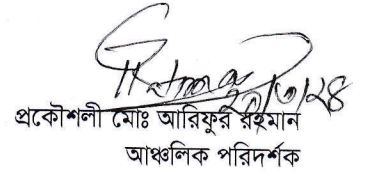 ২০/৩/২৪
প্রকৌশলী মোঃ আরিফুর রহমান
আঞ্চলিক পরিদর্শক